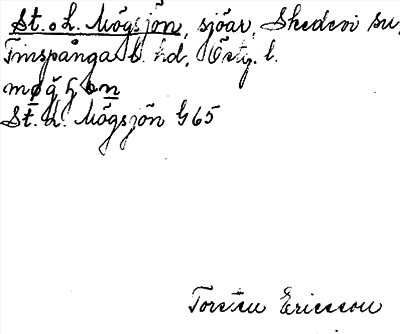 St. o L. Mögsjön, sjöar, Skedevi sn,
Finspånga l. hd, Östg. l.
St. L. Mögsjön G65
Torsten Ericsson